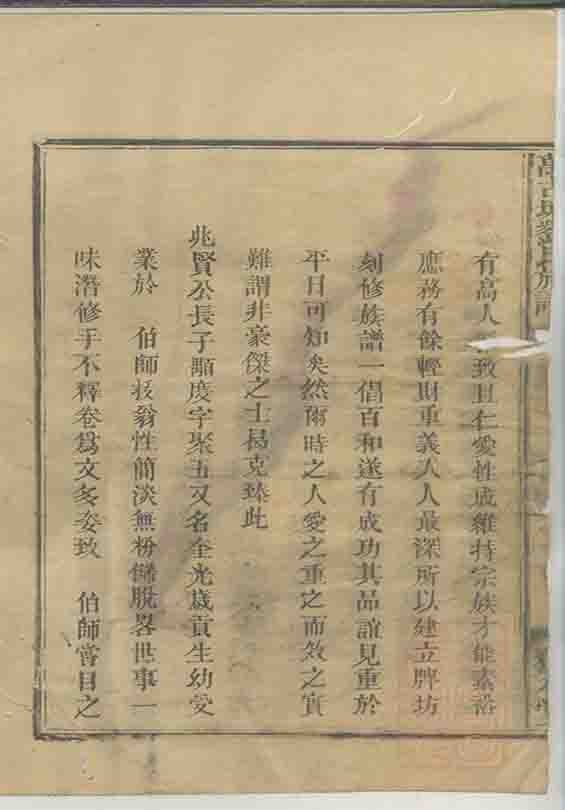 有高人致且仁愛性成維持宗族才能素裕
應務有餘輕財重義入人最深所以建立牌坊
刻修族譜一倡百和遂有成功其品誼見重於
平日可知矣然爾時之人愛之重之而效之實
難謂非豪傑之士曷克臻此
兆賢公長子顯度字聚五又名全光歲貢生幼受
業於 伯師拔翁性簡淡無粉饰脫畧世事一
味潛修手不釋卷爲文多姿致 伯師嘗目之
氏族譜